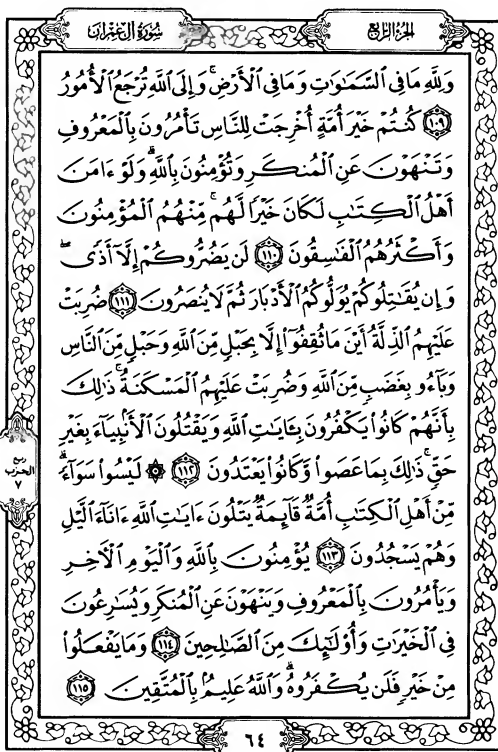 الجزء الرابع
سورة آل عمران
وَلِلَّهِ مَا فِي ٱلسَّمَٰوَٰتِ وَمَا فِي ٱلْأَرْضِۚ وَإِلَى ٱللَّهِ تُرْجَعُ ٱلْأُمُورُ
١٠٩ كُنتُمْ خَيْرَ أُمَّةٍ أُخْرِجَتْ لِلنَّاسِ تَأْمُرُونَ بِٱلْمَعْرُوفِ
وَتَنْهَوْنَ عَنِ ٱلْمُنكَرِ وَتُؤْمِنُونَ بِٱللَّهِۗ وَلَوْ ءَامَنَ
أَهْلُ ٱلْكِتَٰبِ لَكَانَ خَيْرًا لَّهُمۚ مِّنْهُمُ ٱلْمُؤْمِنُونَ
وَأَكْثَرُهُمُ ٱلْفَٰسِقُونَ ١١٠ لَن يَضُرُّوكُمْ إِلَّآ أَذًىۖ
وَإِن يُقَٰتِلُوكُمْ يُوَلُّوكُمُ ٱلْأَدْبَارَ ثُمَّ لَا يُنصَرُونَ ١١١ ضُرِبَتْ
عَلَيْهِمُ ٱلذِّلَّةُ أَيْنَ مَا ثُقِفُوٓا۟ إِلَّا بِحَبْلٍ مِّنَ ٱللَّهِ وَحَبْلٍ مِّنَ ٱلنَّاسِ
وَبَآءُو بِغَضَبٍ مِّنَ ٱللَّهِ وَضُرِبَتْ عَلَيْهِمُ ٱلْمَسْكَنَةُۚ ذَٰلِكَ
بِأَنَّهُمْ كَانُوا۟ يَكْفُرُونَ بِـَٔايَٰتِ ٱللَّهِ وَيَقْتُلُونَ ٱلْأَنۢبِيَآءَ بِغَيْرِ
حَقٍّۚ ذَٰلِكَ بِمَا عَصَوا۟ وَّكَانُوا۟ يَعْتَدُونَ ١١٢ ۞ لَيْسُوا۟ سَوَآءًۗ
مِّنْ أَهْلِ ٱلْكِتَٰبِ أُمَّةٌ قَآئِمَةٌ يَتْلُونَ ءَايَٰتِ ٱللَّهِ ءَانَآءَ ٱلَّيْلِ
وَهُمْ يَسْجُدُونَ ١١٣ يُؤْمِنُونَ بِٱللَّهِ وَٱلْيَوْمِ ٱلْأَخِرِ
وَيَأْمُرُونَ بِٱلْمَعْرُوفِ وَيَنْهَوْنَ عَنِ ٱلْمُنكَرِ وَيُسَٰرِعُونَ
فِي ٱلْخَيْرَٰتِ وَأُو۟لَٰٓئِكَ مِنَ ٱلصَّٰلِحِينَ ١١٤ وَمَا يَفْعَلُوا۟
مِنْ خَيْرٍ فَلَن يُكْفَرُوهُۗ وَٱللَّهُ عَلِيمٌۢ بِٱلْمُتَّقِينَ ١١٥
ربع
الحزب
٧
٦٤